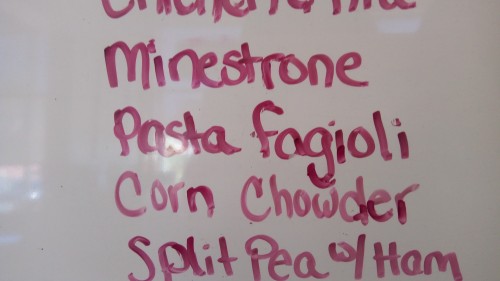 Minestrone
Pasta fagioli
Corn Chowder
Split Pea w/ Ham